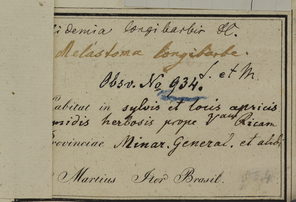 idemia longibarbis DC.
Melastoma longibarbe.
Obsv. No 934. L. et M.
abitat in sylvis et locis apricis
midis herbosis prope
rovinciae Minar. General. et alibi
Martius Iter Brasil.